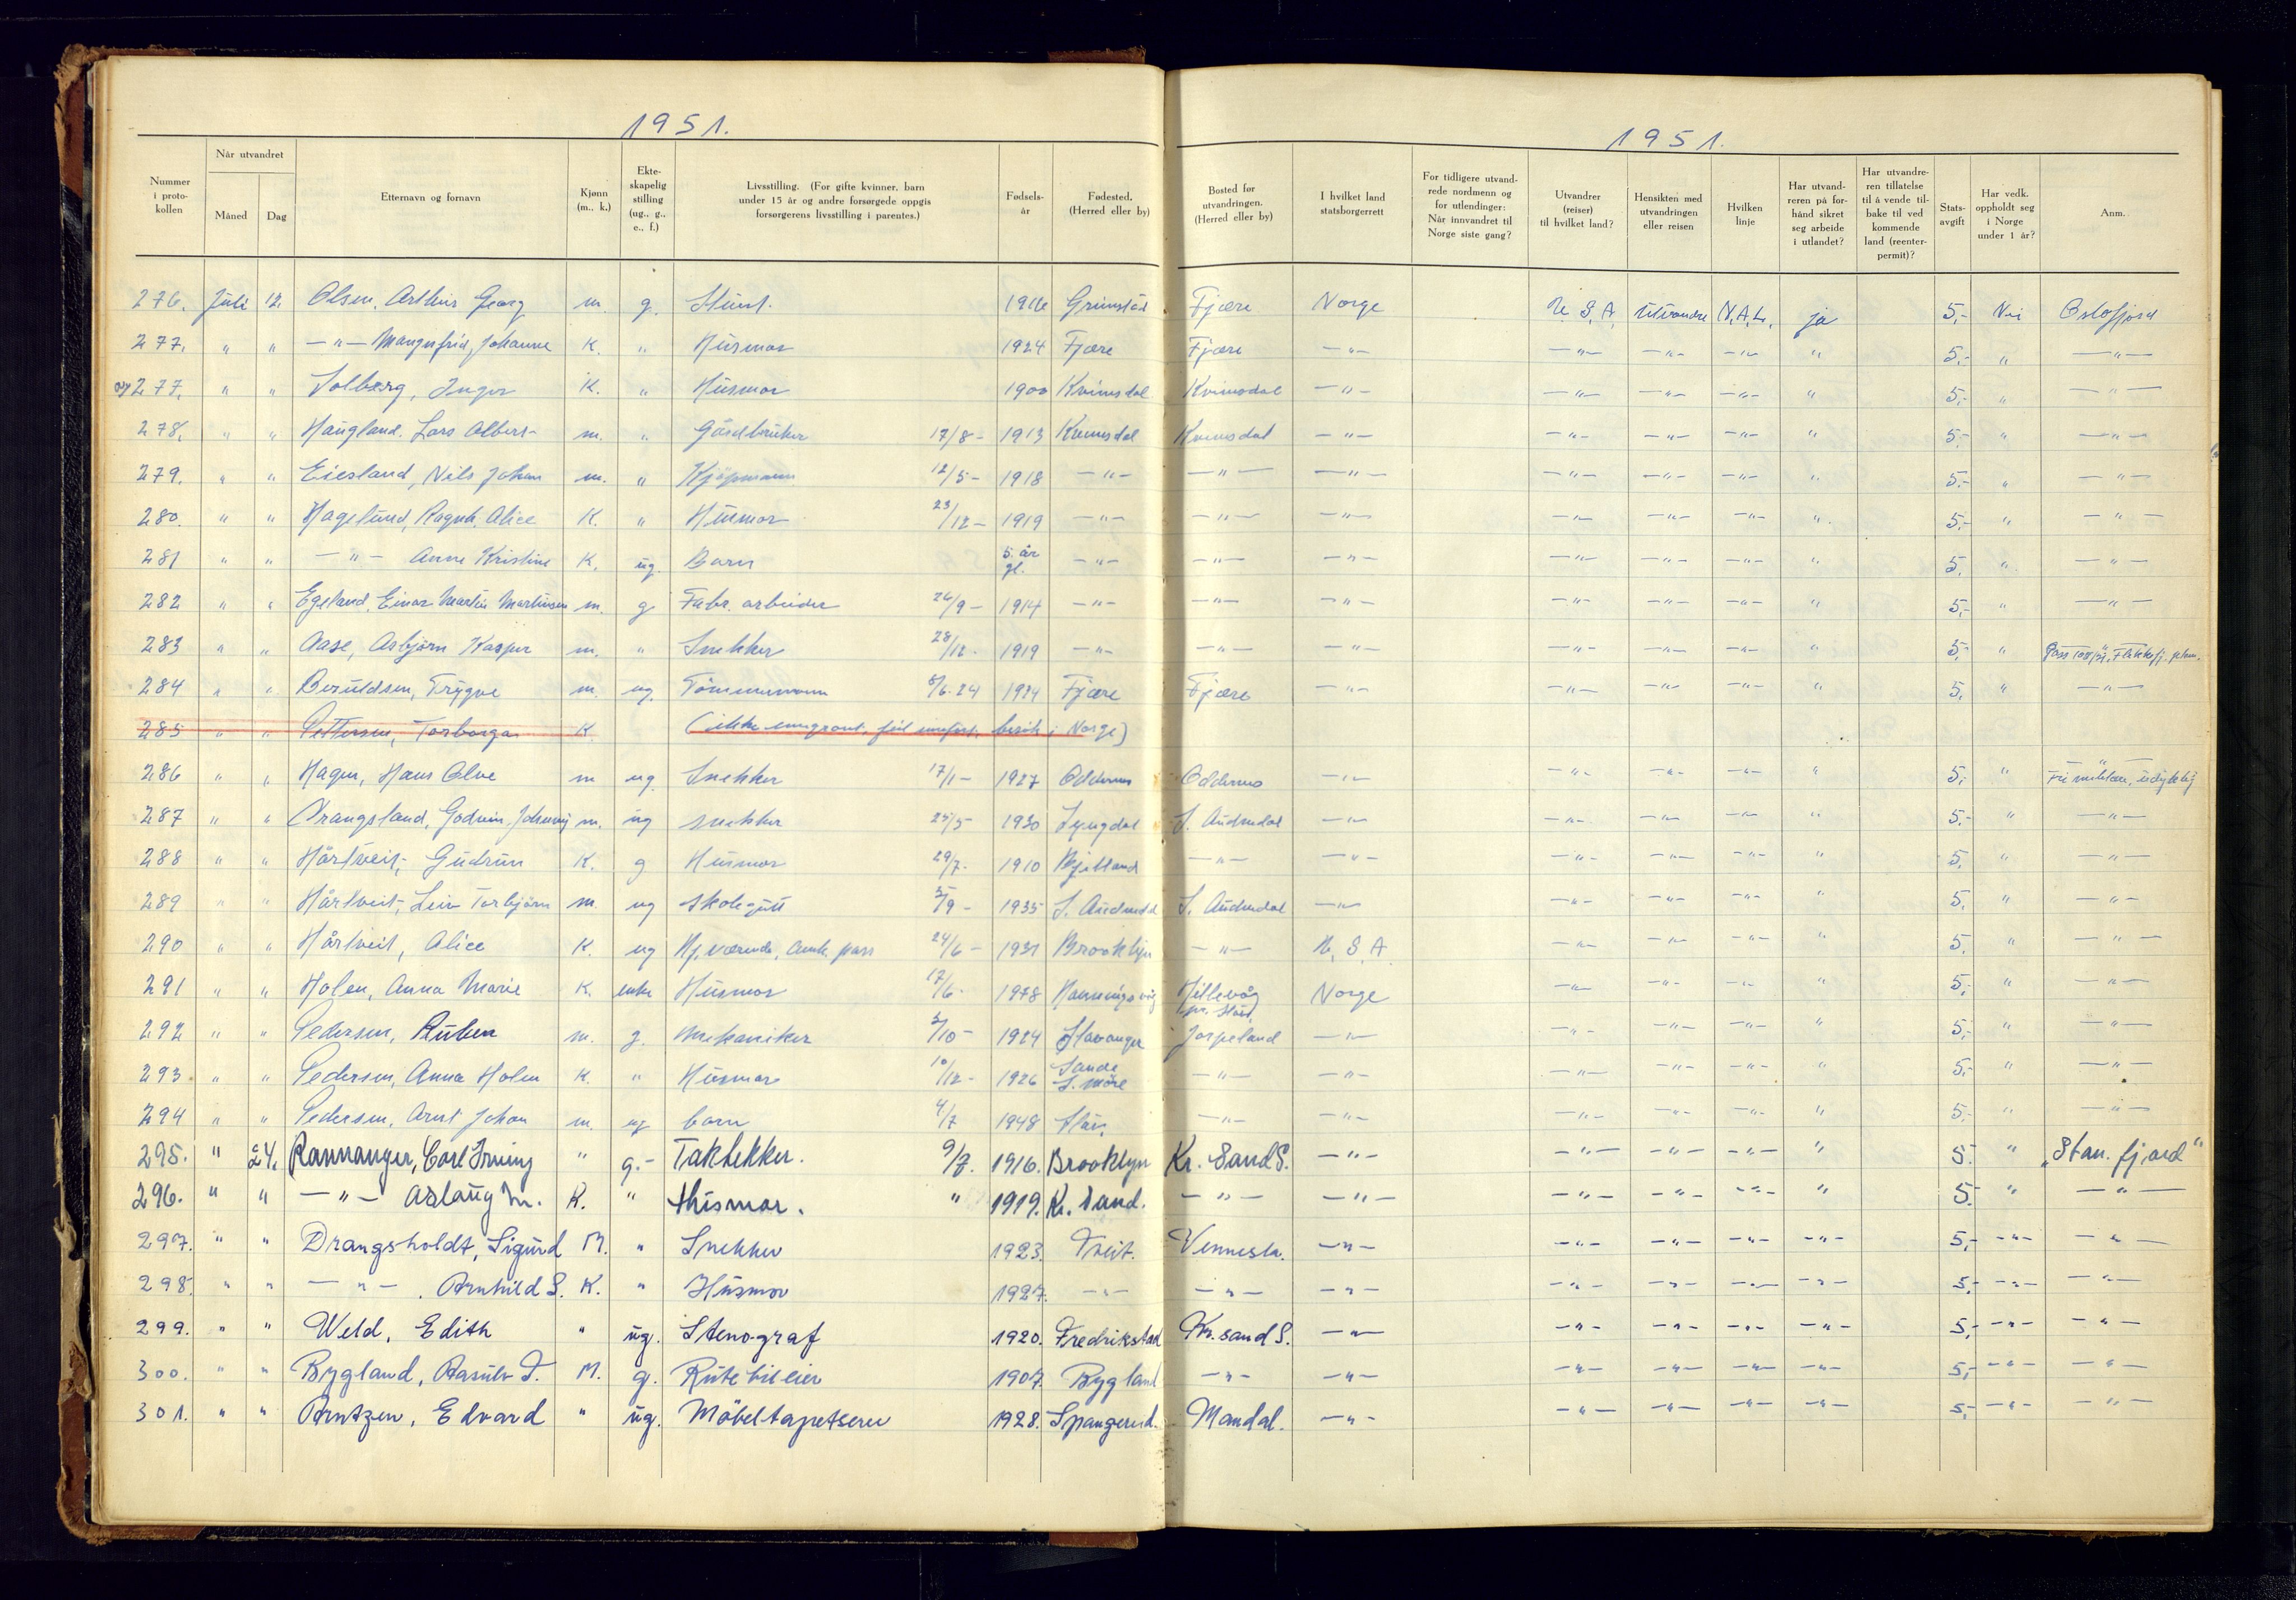 1951.
1951.
Nummer i proto-kollen | Når utvandret Måned Dag | Etternavn og fornavn | Kjønn (m., k.) | Ekte-skapelig stilling (ug., g., e., f.) | Livsstilling. (For gifte kvinner, barn under 15 år og andre forsørgede oppgis forsørgerens livsstilling i parentes.) | Fødsels-år | Fødested. (Herred eller by) | Bosted før utvandringen. (Herred eller by) | I hvilket land statsborgerrett | For tidligere utvand-rede nordmenn og for utlendinger: Når innvandret til Norge siste gang? | Utvandrer (reiser) til hvilket land? | Hensikten med utvandringen eller reisen | Hvilken linje | Har utvand-reren på for-hånd sikret seg arbeide i utlandet? | Har utvandre-ren tillatelse til å vende til-bake til ved kommende land (reenter-permit)? | Stats-avgift | Har vedk. oppholdt seg i Norge under 1 år? | Anm.
276. Juli 12. Olsen, Arthur Georg m. g. Grimstad Fjære Norge U.S.A. Utvandre N.A.L. ja 5,- Nei Oslofjord
277. " " —"— Johanne K. " Husmor 1924 Fjære Fjære —"— —"— —"— —"— " 5,- " —"—
277. " " Solberg, Inger K. " Husmor 1900 Kvinesdal Kvinesdal —"— —"— —"— —"— " 5,- " —"—
278. " " Haugland, Lars Albert m. " Gårdbruker 17/8- 1913 Kvinesdal Kvinesdal —"— —"— —"— —"— " 5,- " —"—
279. " " Eiesland, Nils Johan m. " Kjøpmann 12/5- 1918 —"— —"— —"— —"— —"— —"— " 5,- " —"—
280. " " Hagelund, Ragnh. Alice K. " Husmor 23/12- 1919 —"— —"— —"— —"— —"— —"— " 5,- " —"—
281 " " —"— Anne Kristine K. ug. Barn 5 år gl. —"— —"— —"— —"— —"— —"— " 5,- " —"—
282 " " Egeland, Einar Martin Martinsen m. g Fabr. arbeider 26/9- 1914 —"— —"— —"— —"— —"— —"— " 5,- " —"—
283 " " Aase, Asbjørn Kasper m. " Snekker 28/12. 1919 —"— —"— —"— —"— —"— —"— " 5,- "
284 " " Beruldsen, Trygve m. ug. Tømmermann 1924 Fjære Fjære —"— —"— —"— —"— " 5,- " —"—
285 " " Pettersen, Torborg K. (ikke emigrant, feil innført. besøk i Norge)
286 " " Hagen, Hans Olve m ug. Snekker 17/1- 1927 Oddernes Oddernes —"— —"— —"— —"— " 5,- "
287 " " Drangsland, Godwin m. ug snekker 1930 Lyngdal S. Audnedal —"— —"— —"— —"— " 5,- " —"—
288 " " Hårtveit, Gudrun K. g Husmor 29/7- 1910 Bjelland —"— —"— —"— —"— —"— " 5,- " —"—
289 " " Hårtveit, Leiv Torbjørn m ug skolegutt 1935 S. Audnedal S. Audnedal —"— —"— —"— —"— " 5,- " —"—
290 " " Hårtveit, Alice K. ug Hj. værende, Amk. pass 24/6- 1931 Brooklyn —"— U.S.A. —"— —"— —"— " 5,- " —"—
291 " " Holen, Anna Marie K. enke Husmor 17/6- Hillevåg Norge —"— —"— —"— " 5,- " —"—
292 " " Pedersen, Ruben m. g. Mekaniker 1924 Stavanger Jørpeland —"— —"— —"— —"— " 5,- " —"—
293 " " Pedersen, Anna Holen K. " Husmor 10/12- 1926 Sande S. Møre —"— —"— —"— —"— —"— " 5,- " —"—
294 " " Pedersen, Arnt Johan m. ug barn 4/7 1948 Stav. —"— —"— —"— —"— —"— " 5,- " —"—
295. " 24. Rannanger, Carl Irving " g.- Taktekker. 9/7. 1916. Brooklyn Kr. Sand S. —"— —"— —"— —"— " 5. " "Stav. fjord"
296. " " —"— Aslaug M. K. " Husmor. " 1919. Kr. Sand. —"— —"— —"— —"— —"— " 5. " —"—
297. " " Drangsholdt, Sigurd M. " Snekker 1923. Tveit. Vennesla. —"— —"— —"— —"— —"— 5,- —"— —"—
298. " " —"—, Arnhild S. K. " Husmor 1927. —"— —"— —"— —"— —"— —"— —"— 5,- —"— —"—
299. " " Weld, Edith " ug. Stenograf 1920. Fredrikstad Kr. sand S. —"— —"— —"— —"— —"— 5,- —"— —"—
300. " " Bygland, Aasulv T. M. g. Rutebileier 1907. Bygland —"— —"— —"— —"— —"— —"— 5,- —"— —"—
301. " " Arntzen, Edvard " ug. Möbeltapetserer 1928. Spangereid. Mandal. —"— —"— —"— —"— —"— 5,- —"— —"—